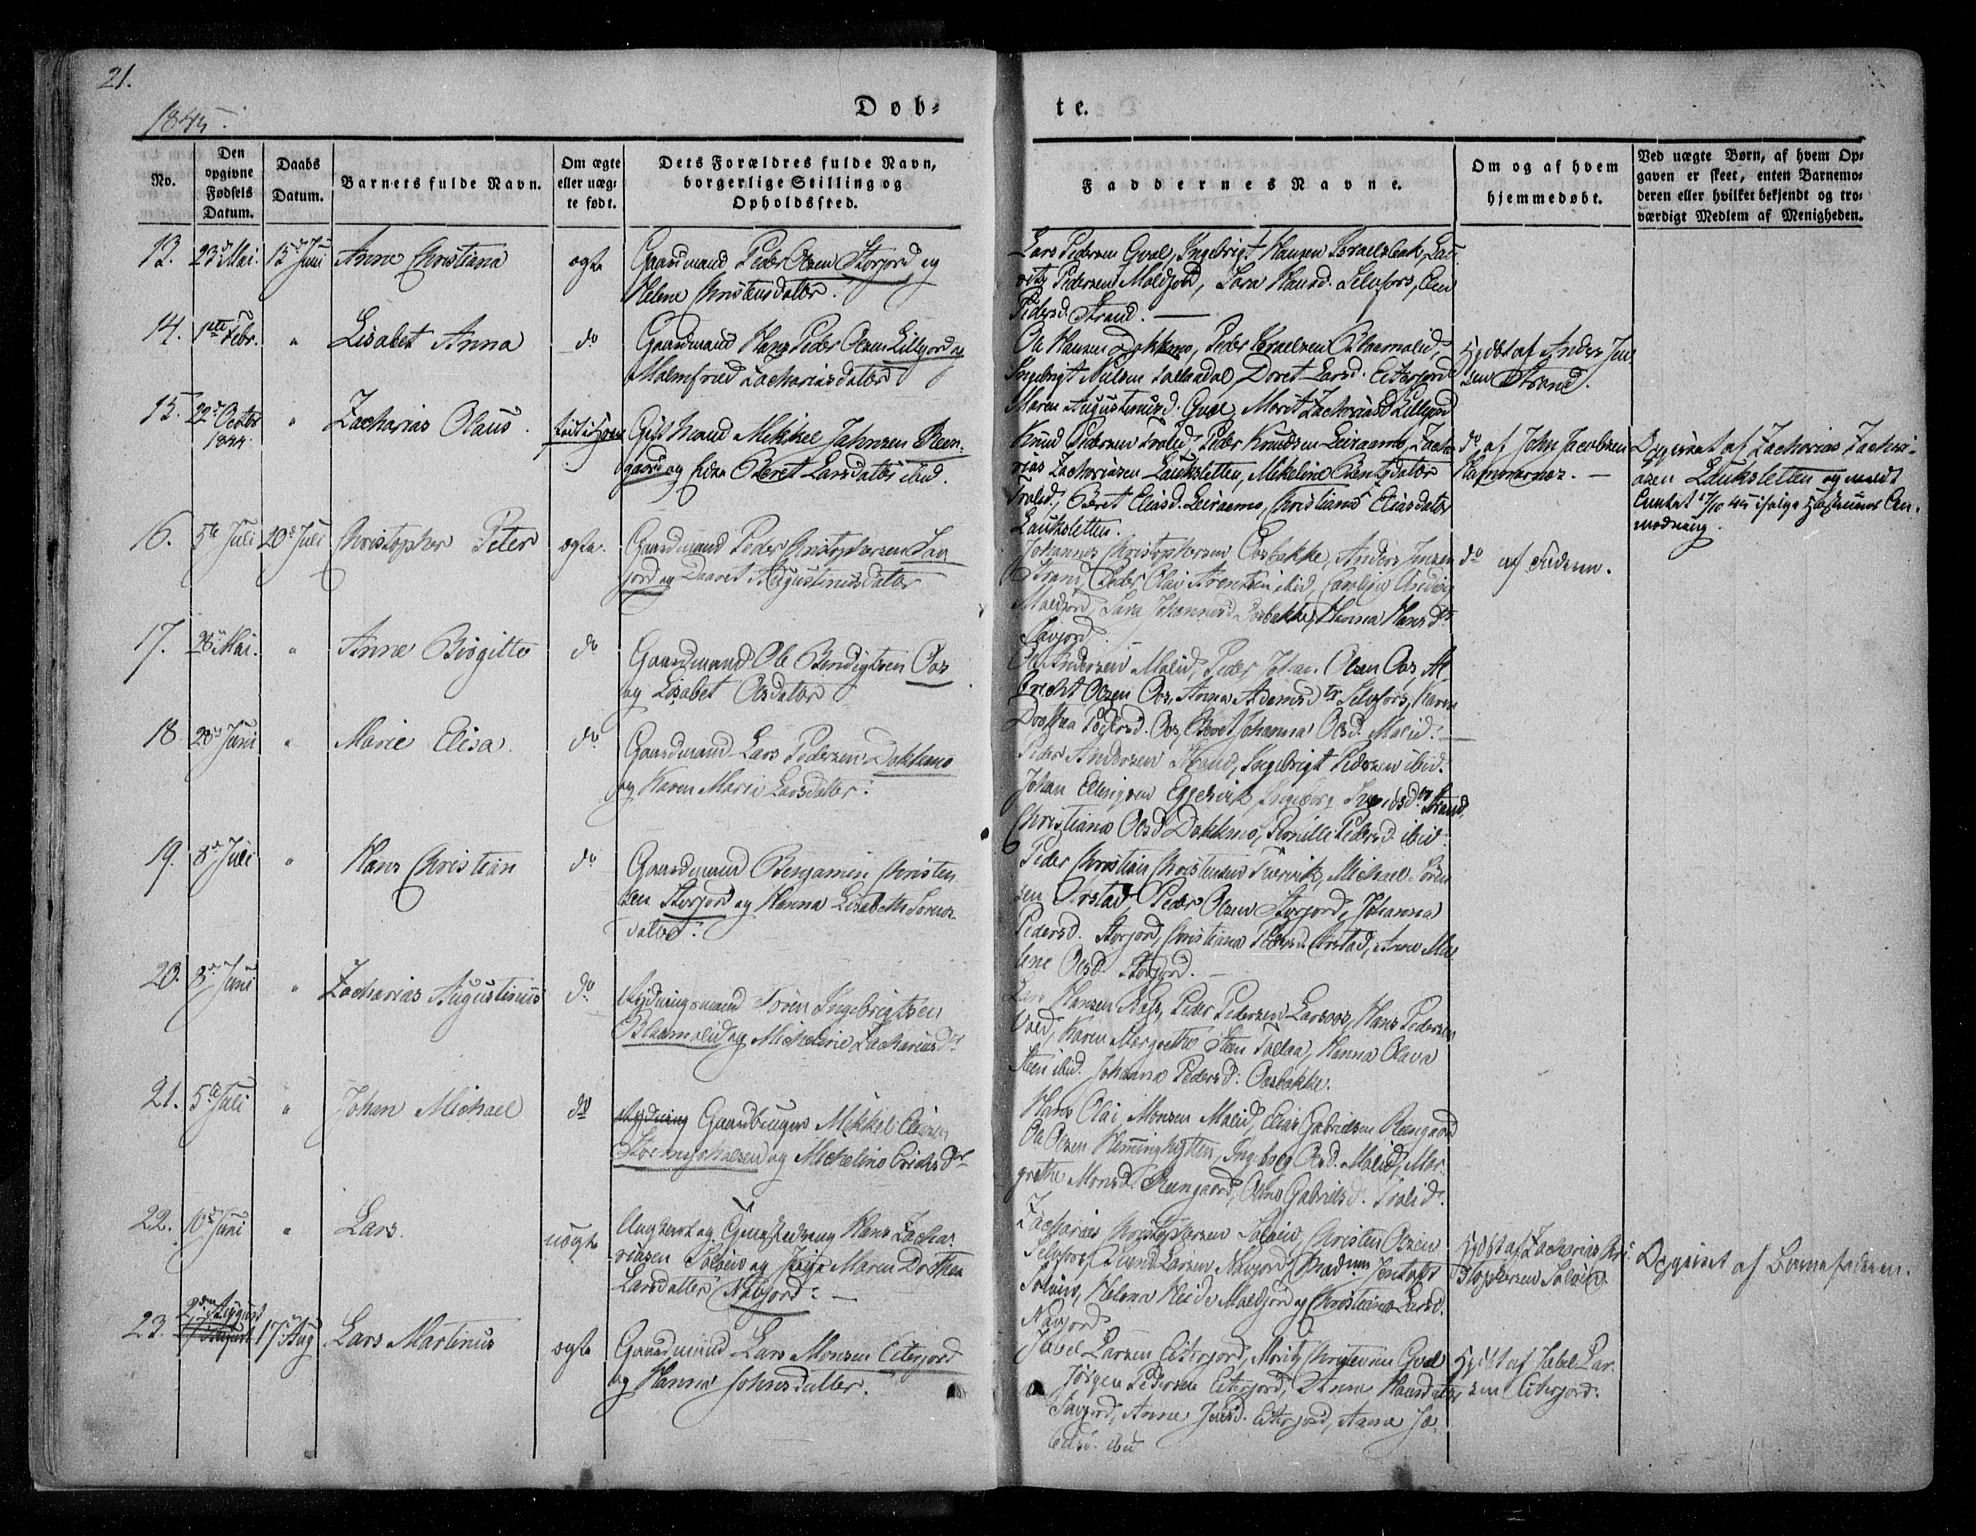 21.
1845.
Døb-
te.
No.
Den opgivne Fødsels Datum.
Daabs Datum.
Barnets fulde Navn.
Om ægte eller uægte født.
Dets Forældres fulde Navn, borgerlige Stilling og Opholdssted.
Faddernes Navne.
Om og af hvem hjemmedøbt.
Ved uægte Børn, af hvem Opgaven er skeet, enten Barnemoderen eller hvilket bekjendt og troværdigt Medlem af Menigheden.
13. 23d Mai. 15d Juni Anne Christiana ægte
Gaardmand Peder Olsen Storjord og
Helene Christensdatter.
Lars Pedersen Qval, Ingebrigt Hansen Israelsbak,
Pedersen Maldjord, Lara Hansd. Selvfors,
Pedersd. Strand.
14. 1ste Febr. " Lisabet Anna do
Gaardmand Hans Peder Olsen Lilljord og
Malmfrid Zachariasdatter
Ole Hansen Dokkmo, Peder Israelsen Blaamolid,
Ingebrigt Nilsen Tollaadal Doret Larsd. Eiterjord
Maren Augustinusd. Qval, Marit Zachariasd Lilljord
Hjdøbt af Anders Jen
sen Strand.
15. 22d Octobr 1844 " Zacharias Olaus.
Gift Mand Mikkel Jahnsen Reen-
gaard og Beret Larsdatter ibid.
Knud Pedersen Trolid, Peder Knudsen Leiraamo, Zacha-
rias Zachariasen Lauksletten, Mikeline Bentsdatter
Trolid, Beret Eliasd. Leiraamo, Christiana Eliasdatter
Lauksletten.
do af John Jacobsen
Hammernæs.
Opgivet af Zacharias Zachari-
asen Lauksletten og
16. 5te Juli 20d Juli Christopher Peter ægte.
Gaardmand Peder Christophersen Sau
jord og Daaret Augustinusdatter
Johannes Christophersen Oosbakke, Anders Jensen
Strand, Peder Olai Arentsen ibid,
Maldjord, Lara Johannesd. Oosbakke, Hanna Hansdr
Saujord.
do af Faderen.
17. 28d Mai. " Anne Birgitte do
Gaardmand Ole Bendigtsen Oos
og Lisabet Olsdatter
Ole Andersen Molid, Peder Johan Olsen Oos, Al
brecht Olsen Oos, Anna Adamsdr Selvfors, Karen
Dorthea Pedersd. Oos, Beret Johanna Olsd. Molid.
18 28d Juni " Marie Elisa. do
Gaardmand Lars Pedersen Dokkmo
og Karen Marie Larsdatter.
Peder Andersen Strand, Ingebrigt Pedersen ibid.
Johan Ellingsen Eggesvik, Ingeborg Strand,
Christiana Olsd Dokkmo, Pernille Pedersd ibid.
19. 8d Juli " Hans Christian do
Gaardmand Benjamin Christen
sen Storjord og Hanna Lisabeth Sørens-
datter.
Peder Christian Christensen, Michael Sören
sen Arstad, Peder Olsen Storjord, Johanna
Pedersd. Storjord, Christiana Pedersd. Arstad, Anne Ma-
lene Olsd. Storjord.
20. 8d Juni " Zacharias Augustinus do.
Rydningsmand Sören Ingebrigtsen
Blaamolid og Micheline Zachariasdr
Lars Hansen Næs, Peder Pedersen Larsoos, Hans Pedersen
Vold, Karen Margrethe Steen Tollaa, Hanna Olava
Steen ibid. Johanna Pedersd. Oosbakke.
21. 5te Juli " Johan Michael do
Rydning Gaardbruger Mikkel Eliasen
Stormyrbakken og Micheline Erichsdr
Hans Olai Monsen Molid, Elias Gabrielsen Reengaard
Ole Olsen Hemminghytten, Ingeborg Olsd. Molid, Mar-
grethe Monsd. Reengaard, Gabrielsd. Trolid.
22. 10d Juni " Lars. uægte
Ungkarl og Hans Zacha-
riasen Solvin og Pige Maren Dorthea
Larsdatter Navjord.
Zacharias Christophersen Solvin, Christen Olsen
Selvfors, Larsen Navjord,
Solvin, Helena Maldjord og Christiana Larsd.
Navjord.
Hjdøbt af Zacharias Chri
stophersen Solvin
Opgivet af Barnefaderen.
23. 2den August 17d Aug Lars Martinus ægte
Gaardmand Lars Monsen Eiterjord
og Hanna Johnsdatter.
Jabel Larsen Eiterjord, Moritz Christensen Qval
Jørgen Pedersen Eiterjord, Anne Hansdatter
Saujord, Anne Jensd. Eiterjord, Anna
ibid
Hjdøbt af Jabel Lar
sen Eiterjord.